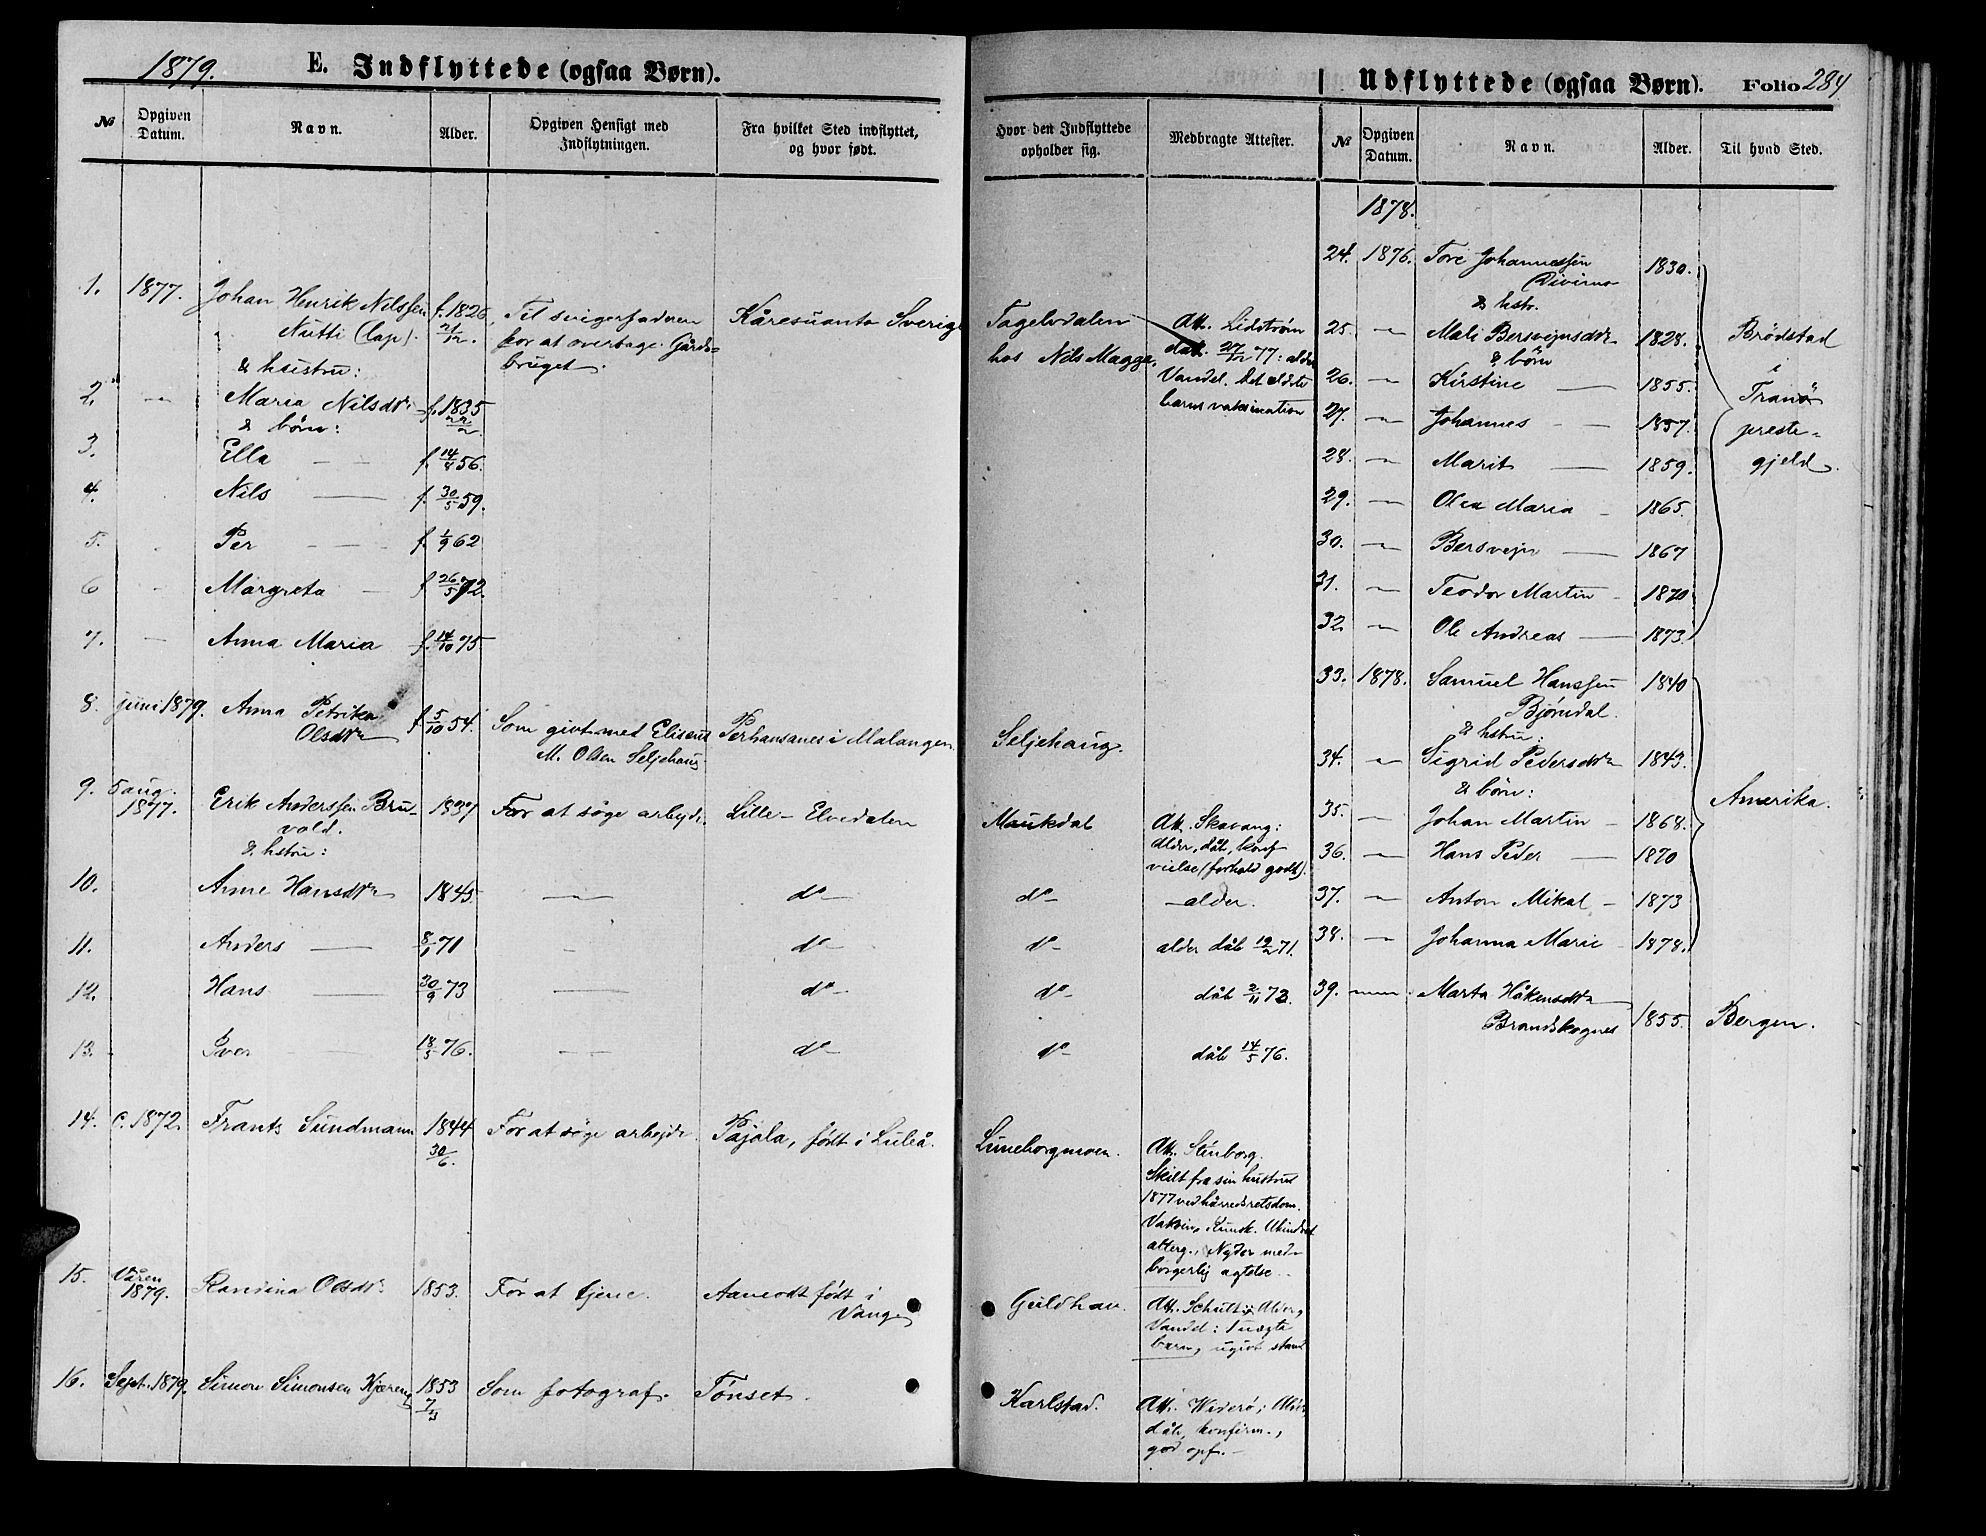 1879.
E. Indflyttede (ogsaa Børn).
№ Opgiven Datum. Navn. Alder. Opgiven Hensigt med Indflytningen. Fra hvilket Sted indflyttet, og hvor født.
1. 1877. Johan Henrik Nilssen f. 1826 Til svigerfaderen Kåresuanto Sverige
Nutti (lap). 21/12. for at overtage Gårds-
& hustru: bruget.
2. " Maria Nilsdtr f. 1835
& børn: 22/2
3. Ella — f. 14/8 56.
4. Nils — f. 30/5 59.
5. Per — f. 1/9 62
6 Margreta — f. 26/5 72.
7. Anna Maria f. 14/10 75
8. juni 1879. Anna Petrika f. 5/10 54. Som givt med Elisæus Perhansanes i Malangen.
Olsdtr M. Olsen Seljehaug.
9. 5 aug. 1877. Erik Anderssen Bru- 1837 For at söge arbejde. Lille-Elvedalen
vold.
& hstru:
10. Anne Hansdtr 1845. — do-
11. Anders — 8/1 71 — do-
12. Hans — 30/9 73 — do-
13. Iver — 18/3 76. — do-
14. c. 1872. Frants Sundmann 1844 For at söge arbejde. Pajala, født i Luleå.
30/6.
15. Våren 1879. Randina Olsdtr 1853. For at tjene. Aamodt født i
Vang
16. Sept. 1879. Simon Simonsen Kjæreng 1853 Som fotograf. Tönset.
Hvor den Indflyttede opholder sig. Medbragte Attester.
Tagelvdalen Att. Lidström
hos Nils Magga. dat. 27/12 77: alder
Vandel. Det eldste
barns vaksination
Seljehaug.
Maukdal Att. Skavang:
alder, dåb, konf
vielse (forhold godt).
do- — alder.
do- alder dåb 19/2 71.
do- dåb 2/11 73.
do- dåb 14/5 76.
Luneborgmoen. Att. Stenborg.
Skilt fra sin hustru
1877 ved härredsretsdom.
Vaksin, Kunsk.
Nyder med-
borgerlig agtelse.
Guldhav. Att. Schult: Alder,
Vandel: 1 uægte
barn, ugivt stand
Karlstad. Att. Widerö; Alder,
dåb, konfirm.,
god opf. —
Udflyttede (ogsaa Børn). Folio 284
№ Opgiven Datum. Navn. Alder. Til hvad Sted.
1878.
24. 1876. Tore Johannessen 1830.
& hstr.
25. " Mali Bersvejnsdtr 1828. Brödstad
& börn i
26. " Kirstine — 1855. Tranö
27. " Johannes — 1857. preste-
28. " Marit — 1859. gjeld.
29. " Olea Maria — 1865.
30. " Bersvejn — 1867
31. " Teodor Martin — 1870
32 " Ole Andreas — 1873.
33. 1878. Samuel Hanssen 1840
Bjørndal.
& hstru:
34. " Sigrid Pedersdtr 1843.
& börn: Amerika.
35. " Johan Martin — 1868.
36. " Hans Peder — 1870
37. " Anton Mikal — 1873
38. " Johanna Marie — 1878.
39. " Marta Håkensdtr
Brandskognes 1855. Bergen.